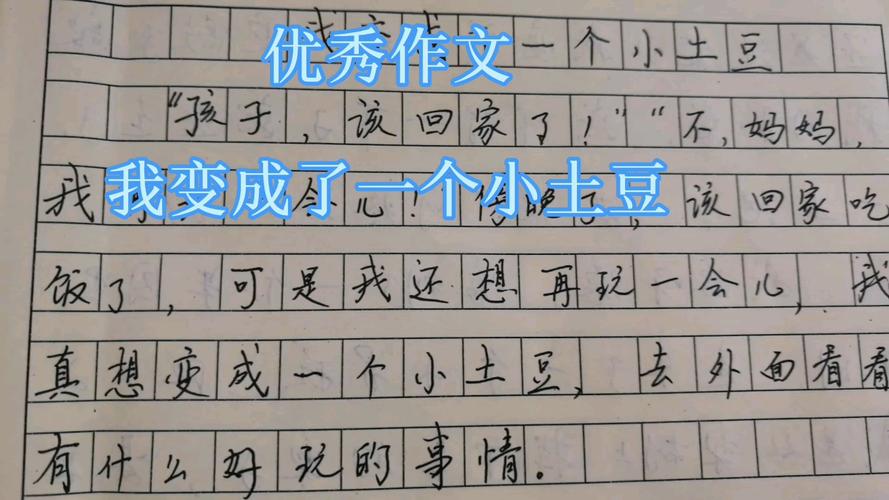 优秀作文
一个小土豆
“孩子，该回家了！”“不，妈妈，
我变成了一个小土豆
我会儿！傍晚了，该回家吃
饭了，可是我还想再玩一会儿，我
真想变成一个小土豆，去外面看看
有什么好玩的事情.